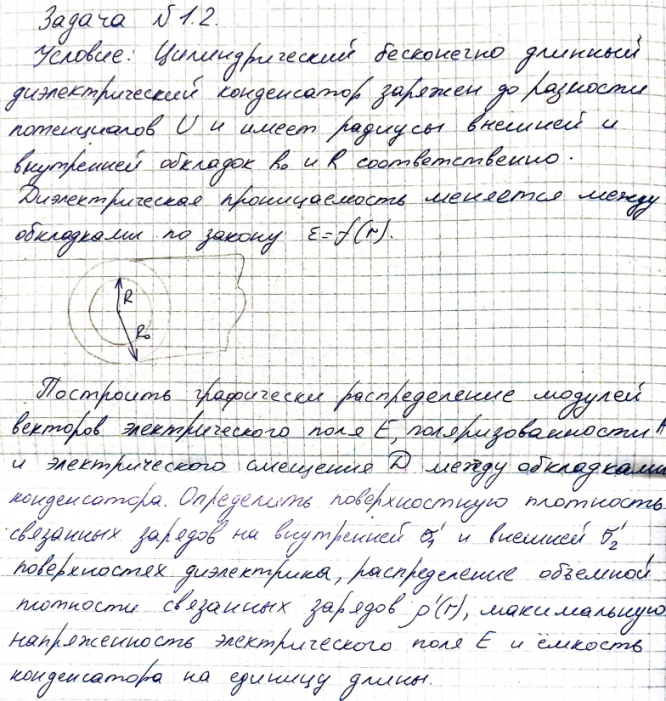 Задача №1.2.
Условие: Цилиндрический бесконечно длинный
диэлектрический конденсатор заряжен до разности
потенциалов U и имеет радиусы внешней и
внутренней обкладок R₀ и R соответственно.
Диэлектрическая проницаемость меняется между
обкладками по закону ε=f(r).
R
R₀
Построить графически распределение модулей
векторов электрического поля E, поляризованности
и электрического смещения D между обкладками
конденсатора. Определить поверхностную плотность
связанных зарядов на внутренней σ₁' и внешней σ₂'
поверхностях диэлектрика, распределение объемной
плотности связанных зарядов ρ'(r), максимальную
напряженность электрического поля E и ёмкость
конденсатора на единицу длины.